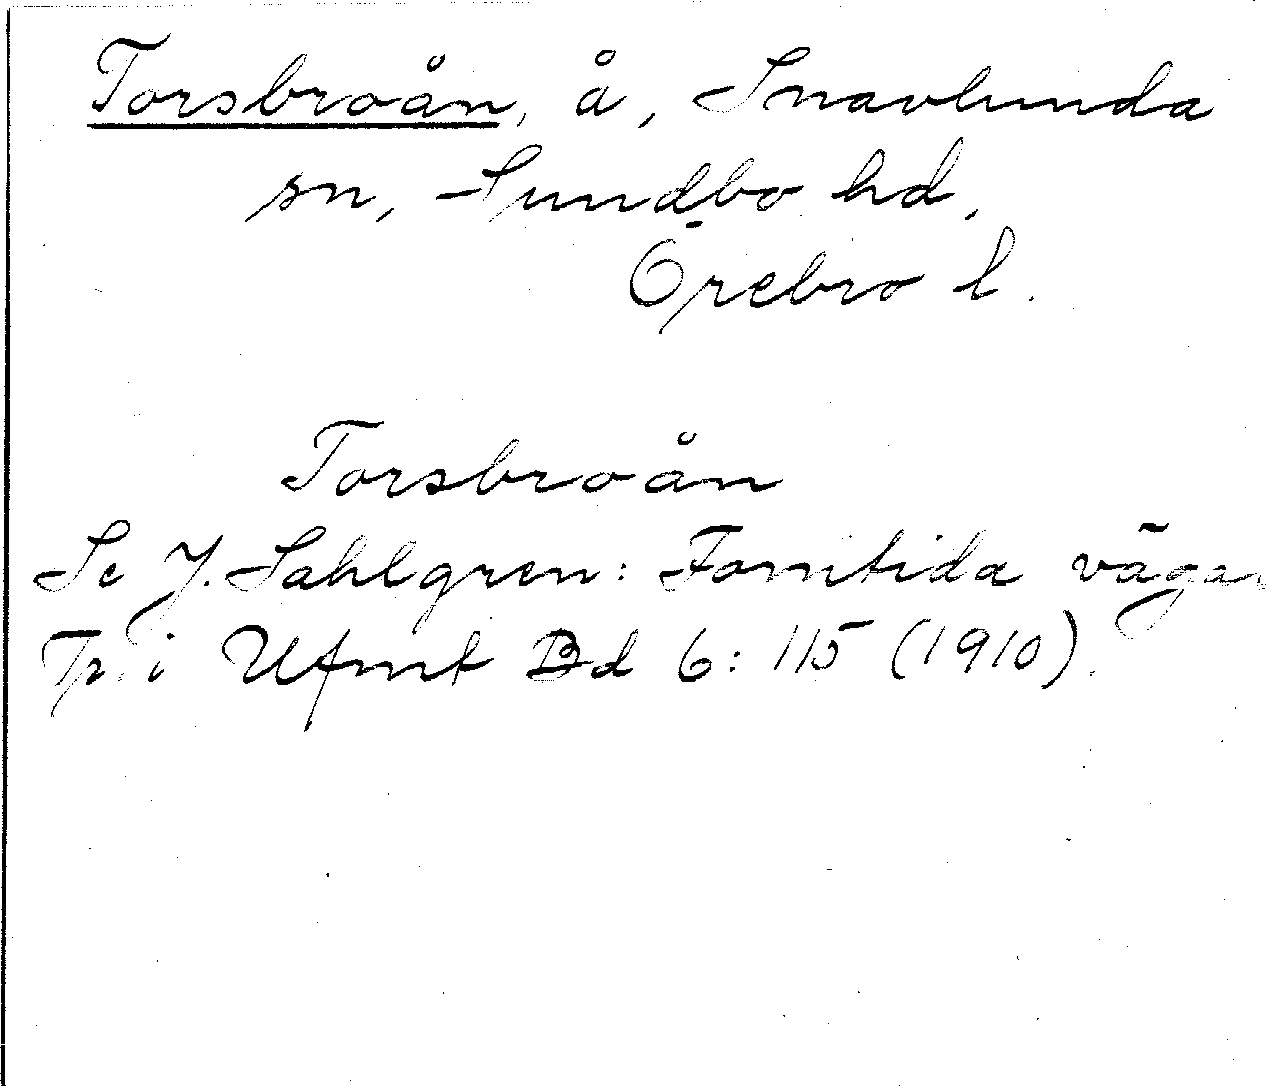 Torsbroån, å, Snavlunda
sn, Sundbo hd,
Örebro l.
Torsbroån
Se J. Sahlgren: Forntida vägar
Tr. i Ufmt Bd 6: 115 (1910).